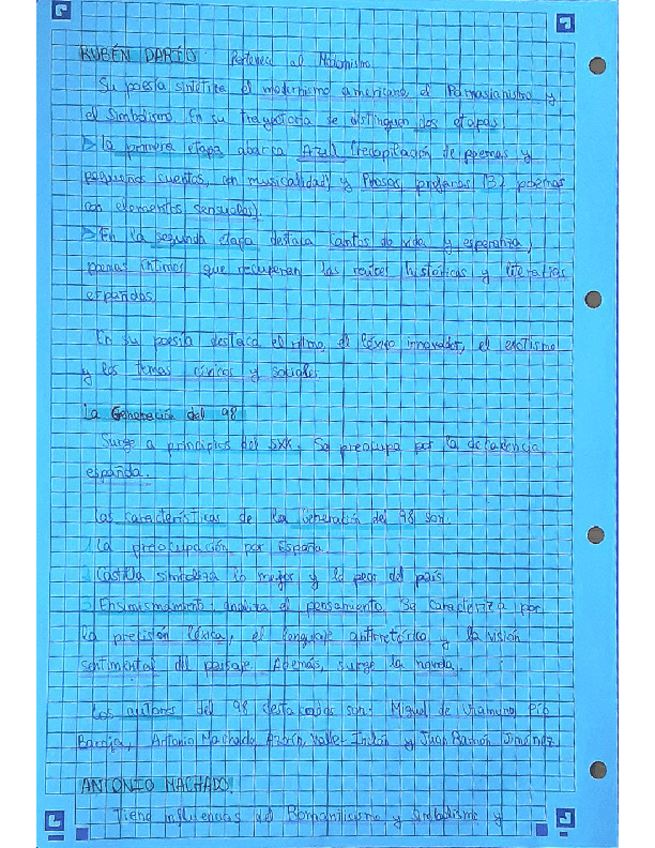 RUBÉN DARÍO: Pertenece al Modernismo.
Su poesía sintetiza el modernismo americano, el Parnasianismo y
el Simbolismo. En su trayectoria se distinguen dos etapas:
> La primera etapa abarca Azul (recopilación de poemas y
pequeños cuentos, con musicalidad) y Prosas profanas (37 poemas
con elementos sensuales).
> En la segunda etapa destaca Cantos de vida y esperanza,
poemas íntimos que recuperan las raíces históricas y literarias
españolas.
En su poesía destaca el ritmo, el léxico innovador, el erotismo
y los temas cívicos y sociales.
La Generación del 98
Surge a principios del SXX. Se preocupa por la decadencia
española.
Las características de la Generación del 98 son:
1 La preocupación por España.
2 Castilla simboliza lo mejor y lo peor del país.
3 Ensimismamiento: analiza el pensamiento. Se caracteriza por
la precisión léxica, el lenguaje antirretórico y la visión
sentimental del paisaje. Además, surge la novela.
Los autores del 98 destacados son: Miguel de Unamuno, Pío
Baroja, Antonio Machado, Azorín, Valle-Inclán y Juan Ramón Jiménez
ANTONIO MACHADO:
Tiene influencias del Romanticismo y Simbolismo y